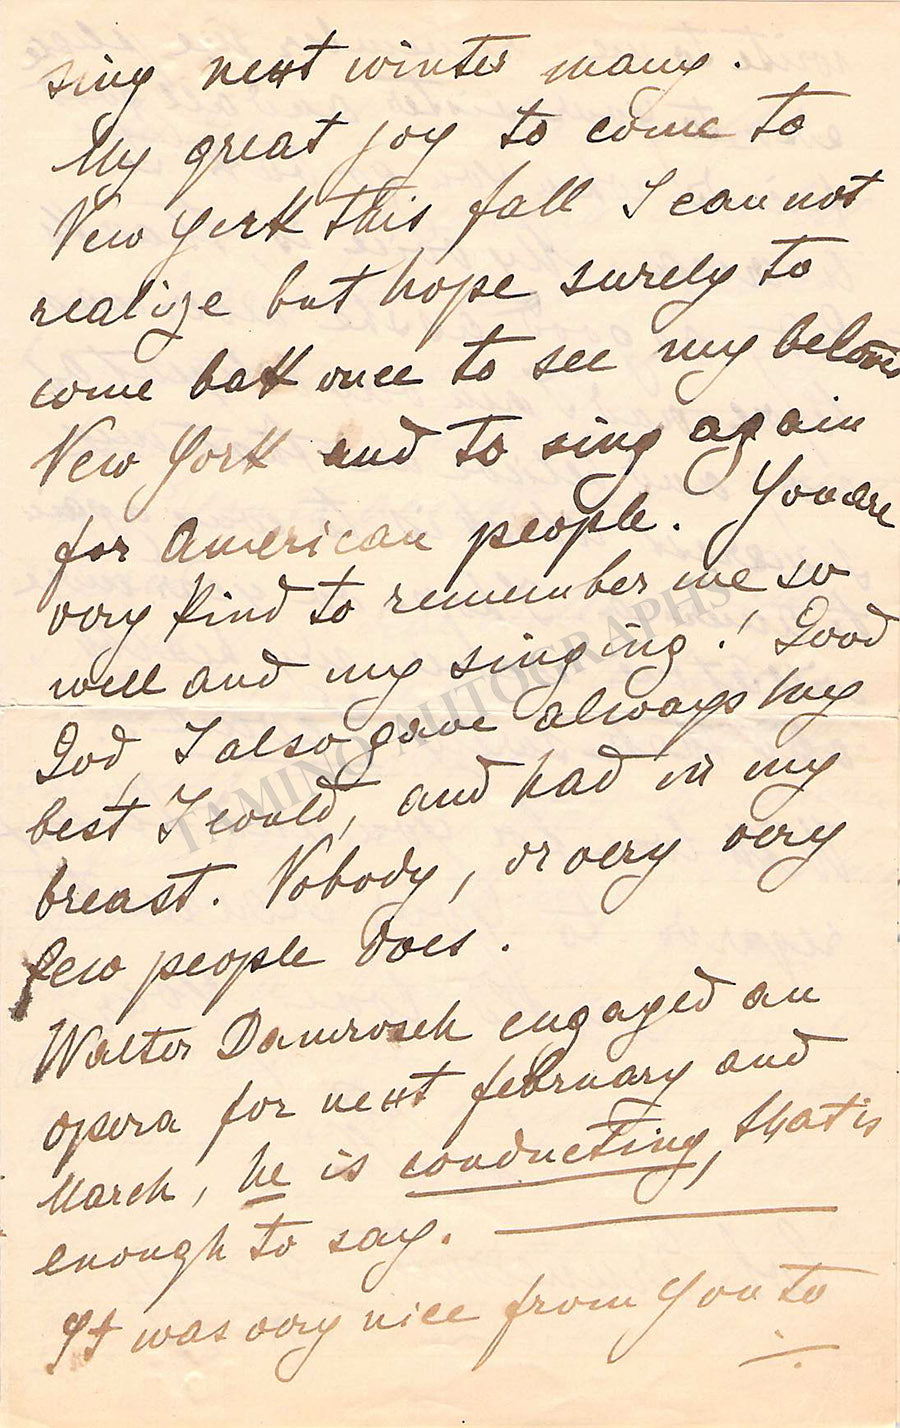 sing next winter many.
My great joy to come to
New York this fall I can not
realize but hope surely to
come back once to see my beloved
New York and to sing again
for American people. You are
very kind to remember me so
well and my singing! Good
God, I also gave always my
best I could, and had in my
breast. Nobody, or very very
few people does.
Walter Damrosch engaged an
opera for next february and
March, he is conducting, that is
enough to say.
It was very nice from You to
TAMINO AUTOGRAPHS